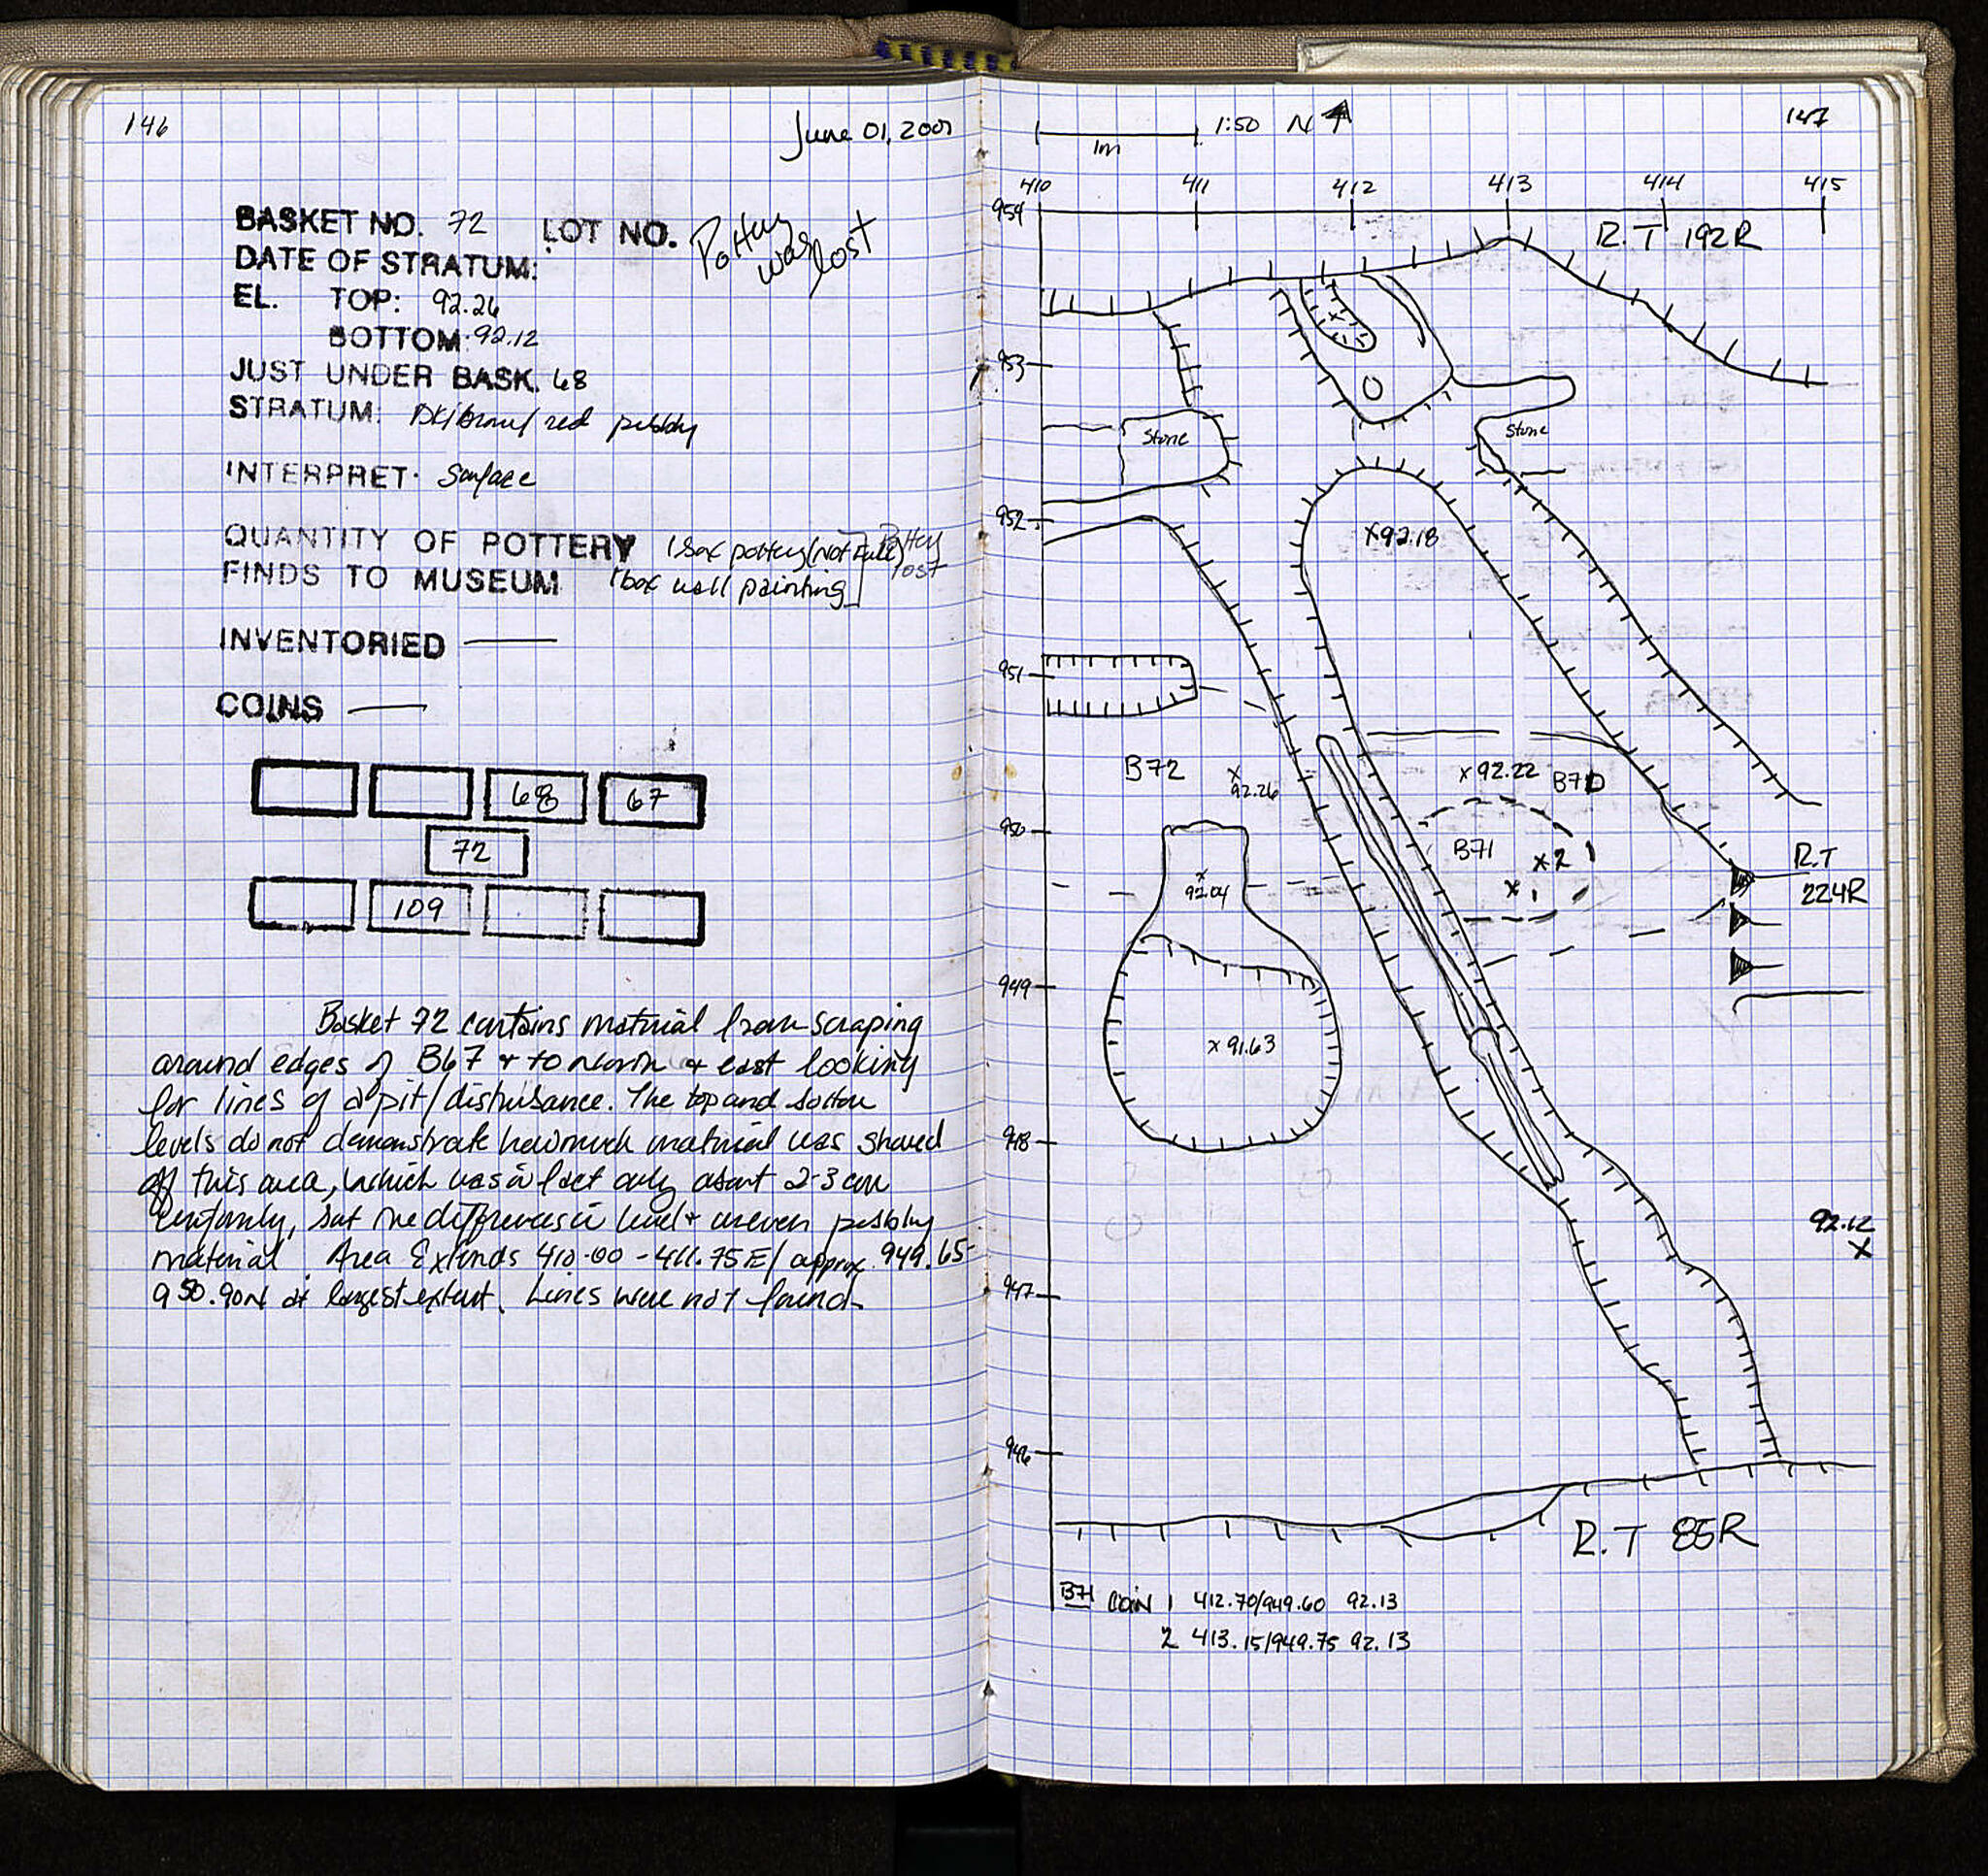 146
June 01, 2001
BASKET NO. 72 LOT NO. Pottery was lost
DATE OF STRATUM:
EL. TOP: 92.26
BOTTOM: 92.12
JUST UNDER BASK. 68
STRATUM: Dk/brown/red pebbly
INTERPRET. Surface
QUANTITY OF POTTERY 1 Box pottery (not Full) Pottery lost
FINDS TO MUSEUM 1 box wall painting
INVENTORIED —
COINS —
68 67
72
109
Basket 72 contains material from scraping
around edges of B67 + to North + east looking
for lines of a pit/disturbance. The top and bottom
levels do not demonstrate how much material was shaved
off this area, which was in fact only about 2-3 cm
uniformly, but the differences in level + uneven pebbly
material. Area Extends 410.00 - 411.75 E/ approx 949.65-
950.90N at largest extent. Lines were not found.
147
1:50 N
1m
410 411 412 413 414 415
954
R.T 192R
953
Stone
Stone
952
X92.18
951
B72
X 92.26
X 92.22 B70
950
B71
X 2
X 1
X 92.04
R.T 224R
949
X 91.63
948
92.12 X
947
946
R.T 85R
B71 COIN 1 412.70/949.60 92.13
2 413.15/949.75 92.13